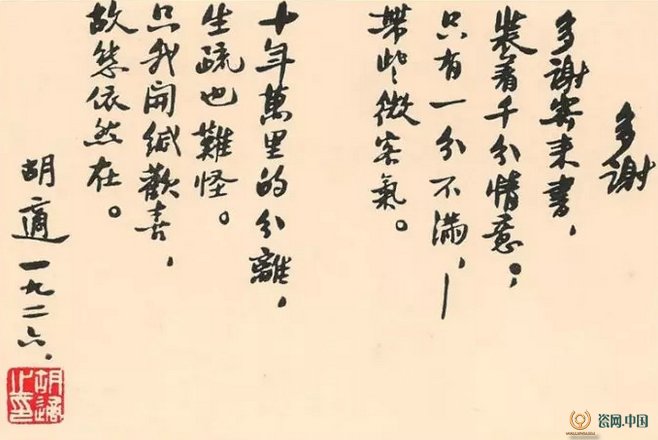 多謝
多謝寄來書，
裝着千分情意；
只有一分不滿，—
帶些微客氣。
十年萬里的分離，
生疏也難怪。
只我開緘歡喜，
故態依然在。
胡適 一九二六、
胡適之印
瓷网.中国